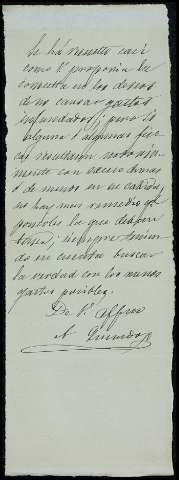 Se há resuelto casi
como V. proponía la
consulta en los deseos
de no causar gastos
infundados; pero si
alguna ó algunas fin
cas resultaren notoria
mente con esceso de mas
ó de menos en su cabida,
no hay mas remedio
ponerles la que
tienen; siempre tenien
do en cuenta buscar
la verdad con los menos
gastos posibles.
De V. affmo